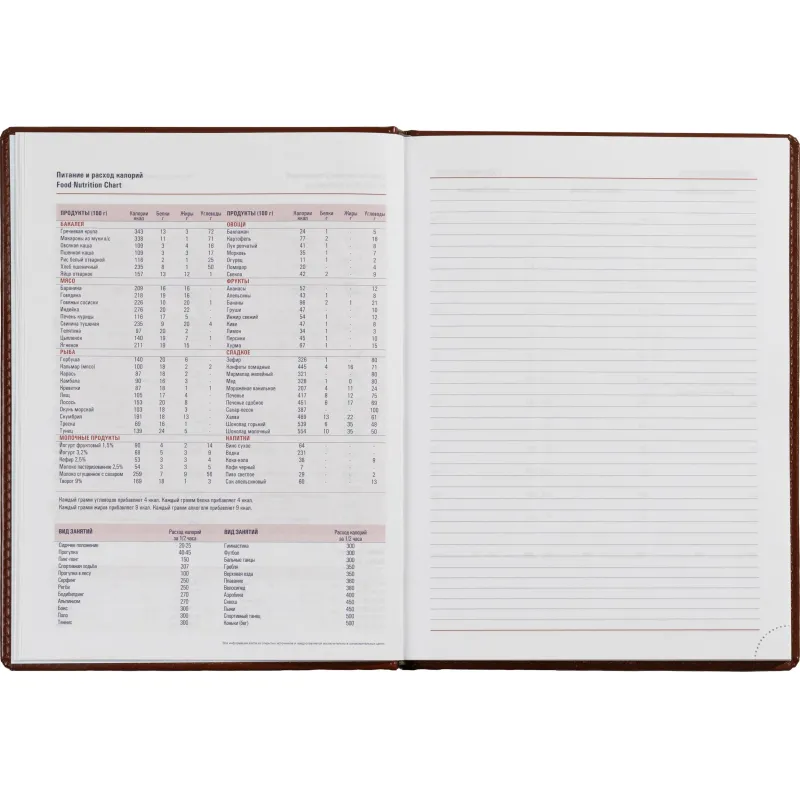 Питание и расход калорий
Food Nutrition Chart
ПРОДУКТЫ (100 г) Калории ккал Белки г Жиры г Углеводы г ПРОДУКТЫ (100 г) Калории ккал Белки г Жиры г Углеводы г
БАКАЛЕЯ ОВОЩИ
Гречневая крупа 343 13 3 72 Баклажан 24 1 - 5
338 11 1 71 Картофель 77 2 -
Овсяная каша 109 3 4 16 Лук репчатый 41 1 - 8
Пшенная каша 109 3 3 17 Морковь 35 1 - 7
Рис белый отварной 116 2 1 25 Огурец 11 1 - 2
Хлеб пшеничный 235 8 1 50 Помидор 20 - - 4
Яйцо отварное 157 13 12 1 Свекла 42 2 - 9
МЯСО ФРУКТЫ
Баранина 209 16 16 - Ананасы 52 - - 12
Говядина 218 19 16 - Апельсины 43 1 - 8
Говяжьи сосиски 226 10 20 1 Бананы 96 2 1 21
Индейка 276 20 22 - Груши 47 - - 10
Печень курицы 116 17 5 - Инжир свежий 54 1 - 12
Свинина тушеная 235 9 20 4 Киви 47 1 - 8
Телятина 97 20 2 - Лимон 34 1 - 3
Цыпленок 140 19 7 1 Персики 45 1 - 10
Ягненок 211 19 15 - Хурма 67 1 - 15
РЫБА СЛАДКОЕ
Горбуша 140 20 6 - Зефир 326 1 - 80
Кальмар (мясо) 100 18 2 2 Конфеты помадные 445 4 16 71
Карась 87 18 2 - Мармелад желейный 321 - - 80
Камбала 90 16 3 - Мед 328 1 0 80
Креветки 87 18 1 1 Мороженое ванильное 207 4 11 24
Лещ 105 17 4 - Печенье 417 8 12 75
Лосось 153 20 8 - Печенье сдобное 451 6 17 69
Окунь морской 103 18 3 - Сахар-песок 387 - - 100
Скумбрия 191 18 13 - Халва 469 13 22 61
Треска 69 16 1 - Шоколад горький 539 6 35 48
Тунец 139 24 5 - Шоколад молочный 554 10 35 50
МОЛОЧНЫЕ ПРОДУКТЫ НАПИТКИ
Йогурт фруктовый 1,5% 90 4 2 14 Вино сухое 64 - - -
Йогурт 3,2% 68 5 3 Водка 231 - - -
Кефир 2,5% 53 3 3 4 Кока-кола 36 - - 9
Молоко пастеризованное 2,5% 54 3 3 5 Кофе черный 7 - - -
Молоко сгущенное с сахаром 259 7 9 56 Пиво светлое 29 - - 2
Творог 9% 169 18 1 3 Сок апельсиновый 60 - - 13
Каждый грамм углеводов прибавляет 4 ккал. Каждый грамм белка прибавляет 4 ккал.
Каждый грамм жиров прибавляет 9 ккал. Каждый грамм алкоголя прибавляет 9 ккал.
ВИД ЗАНЯТИЙ Расход калорий за 1/2 часа ВИД ЗАНЯТИЙ Расход калорий за 1/2 часа
Сидячее положение 20-25 Гимнастика 300
Прогулка 40-45 Футбол 300
Пинг-понг 150 Бальные танцы 300
Спортивная ходьба 207 Гребля 350
Прогулка в лесу 100 Верховая езда 350
Серфинг 250 Плавание 380
Регби 250 Велосипед 380
Бодибилдинг 270 Аэробика 400
Альпинизм 270 Сквош 450
Бокс 300 Лыжи 450
Поло 300 Спортивный танец 500
Теннис 300 Коньки (бег) 500